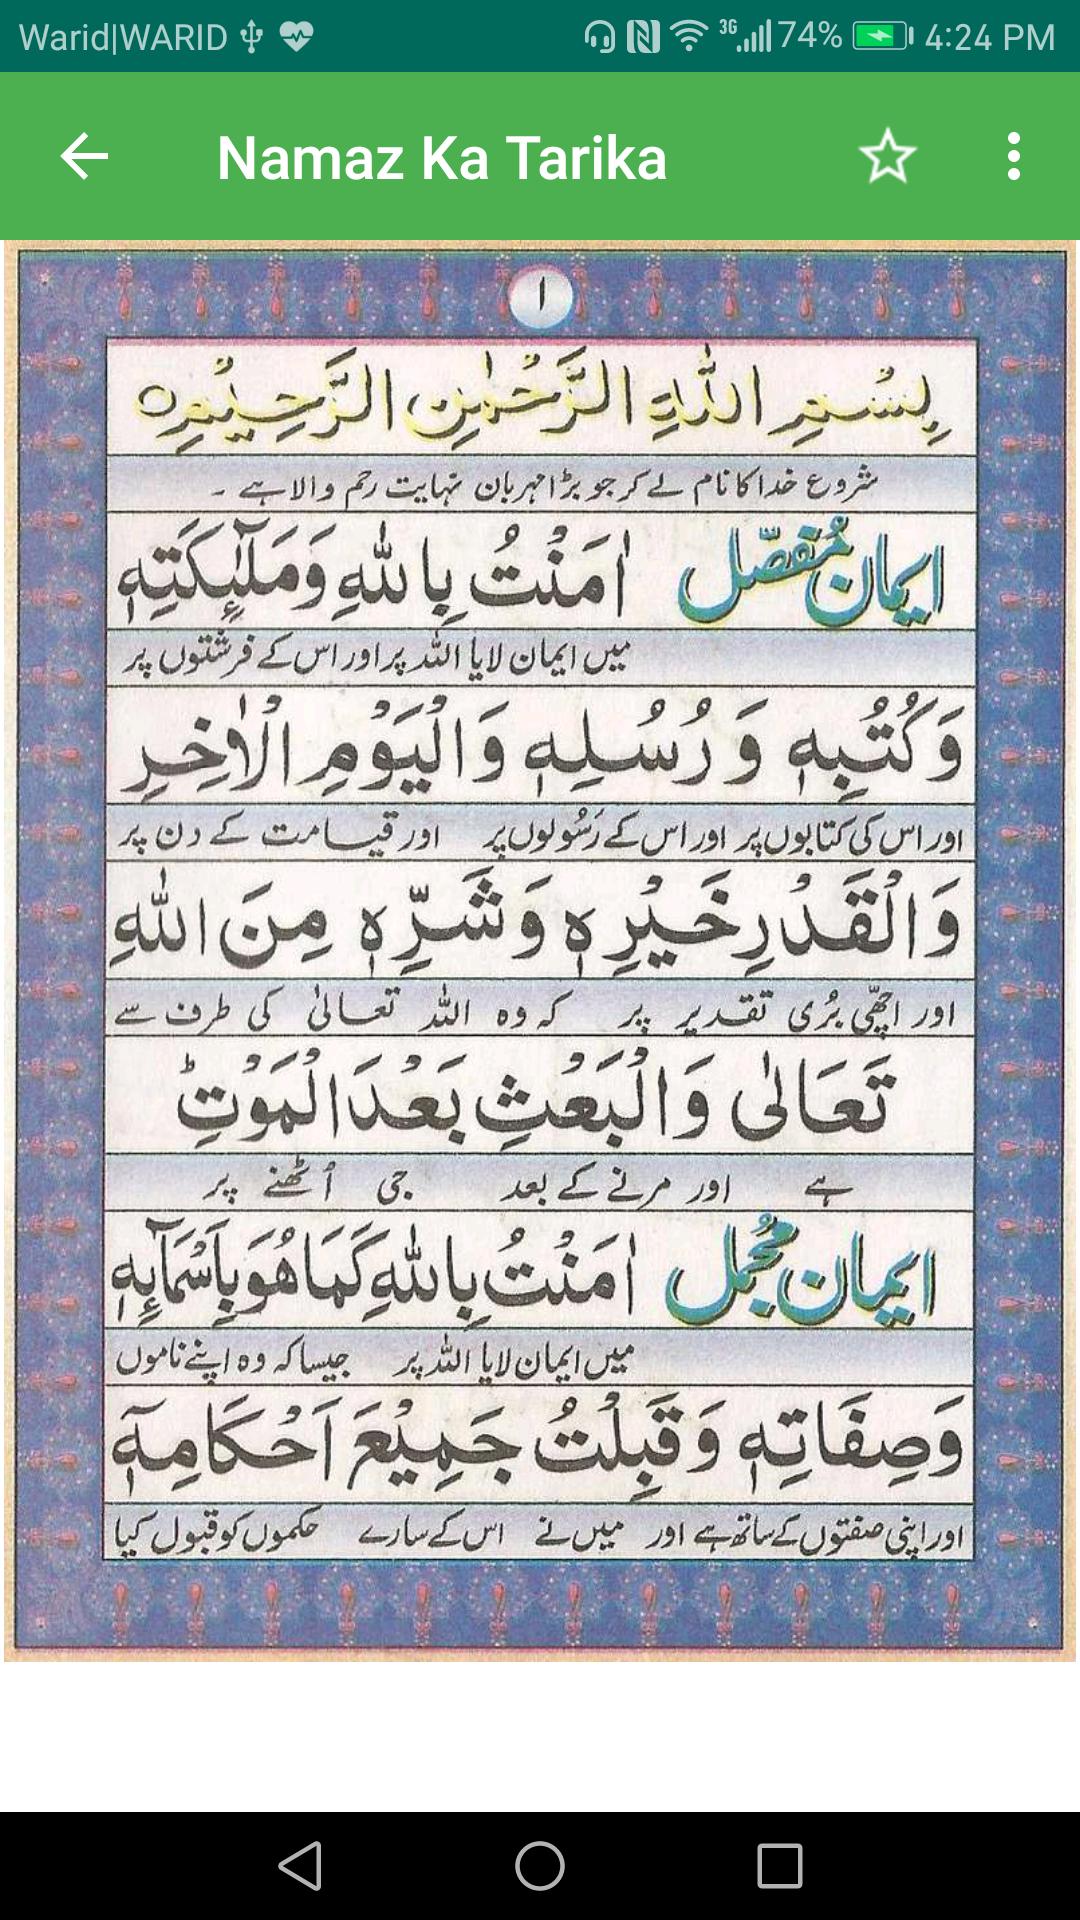 Warid|WARID 3G 74% 4:24 PM
Namaz Ka Tarika
١
بِسْمِ اللّٰهِ الرَّحْمٰنِ الرَّحِيْمِ
شروع خدا کا نام لے کر جو بڑا مہربان نہایت رحم والا ہے ۔
ایمان مُفصّل اٰمَنْتُ بِاللّٰهِ وَمَلٰٓئِكَتِهٖ
میں ایمان لایا اللہ پر اور اس کے فرشتوں پر
وَكُتُبِهٖ وَرُسُلِهٖ وَالْيَوْمِ الْاٰخِرِ
اور اس کی کتابوں پر اور اس کے رَسُولوں پر اور قیامت کے دن پر
وَالْقَدْرِ خَيْرِهٖ وَشَرِّهٖ مِنَ اللّٰهِ
اور اچھّی بُری تقدیر پر کہ وہ اللہ تعالیٰ کی طرف سے
تَعَالٰى وَالْبَعْثِ بَعْدَ الْمَوْتِؕ
ہے اور مرنے کے بعد جی اُٹھنے پر
ایمان مُجمل اٰمَنْتُ بِاللّٰهِ كَمَا هُوَ بِاَسْمَآئِهٖ
میں ایمان لایا اللہ پر جیسا کہ وہ اپنے ناموں
وَصِفَاتِهٖ وَقَبِلْتُ جَمِيْعَ اَحْكَامِهٖٓ
اور اپنی صفتوں کے ساتھ ہے اور میں نے اس کے سارے حکموں کو قبول کیا